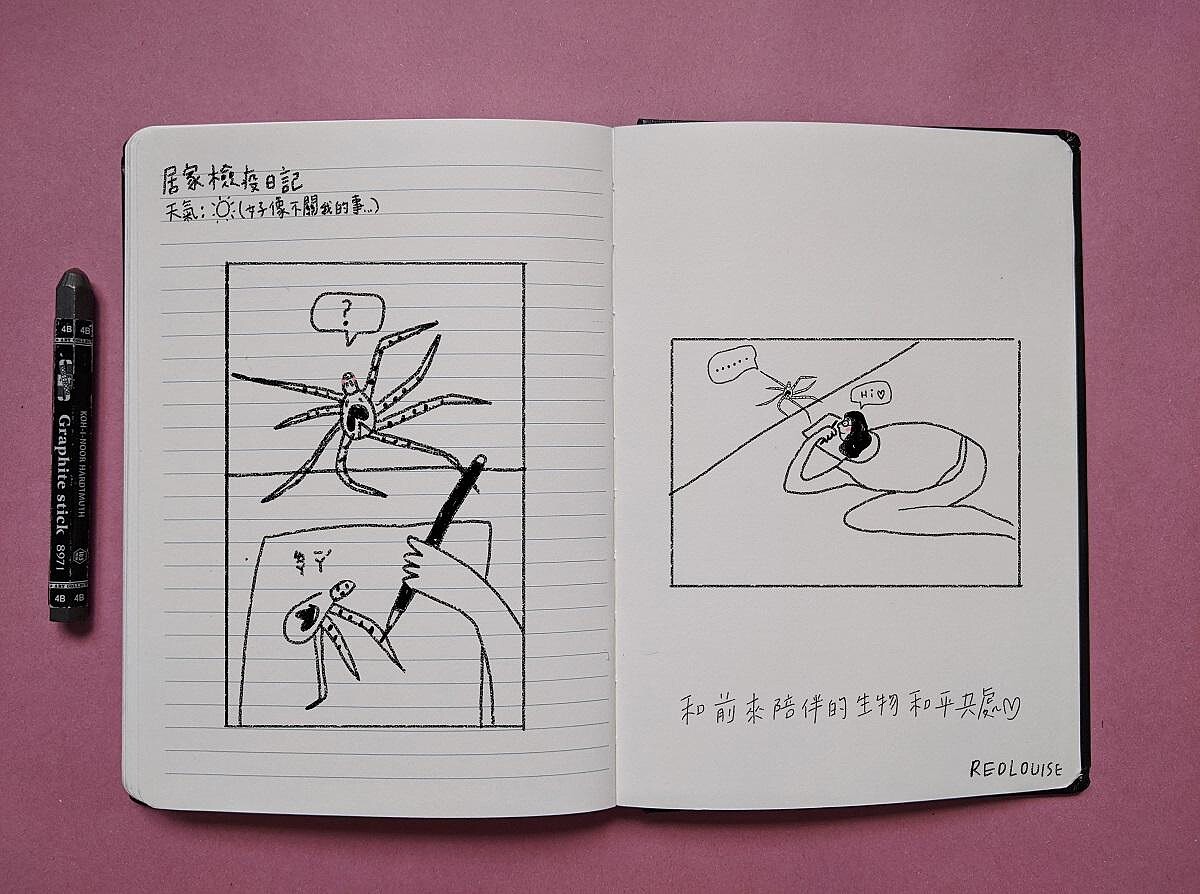 居家檢疫日記
天氣:☼(好像不關我的事...)
?
......
Hi♡
和前來陪伴的生物和平共處~♡
REDLOUISE
4B 4B
KOH-I-NOOR HARDTMUTH
Graphite stick 8971
4B 4B